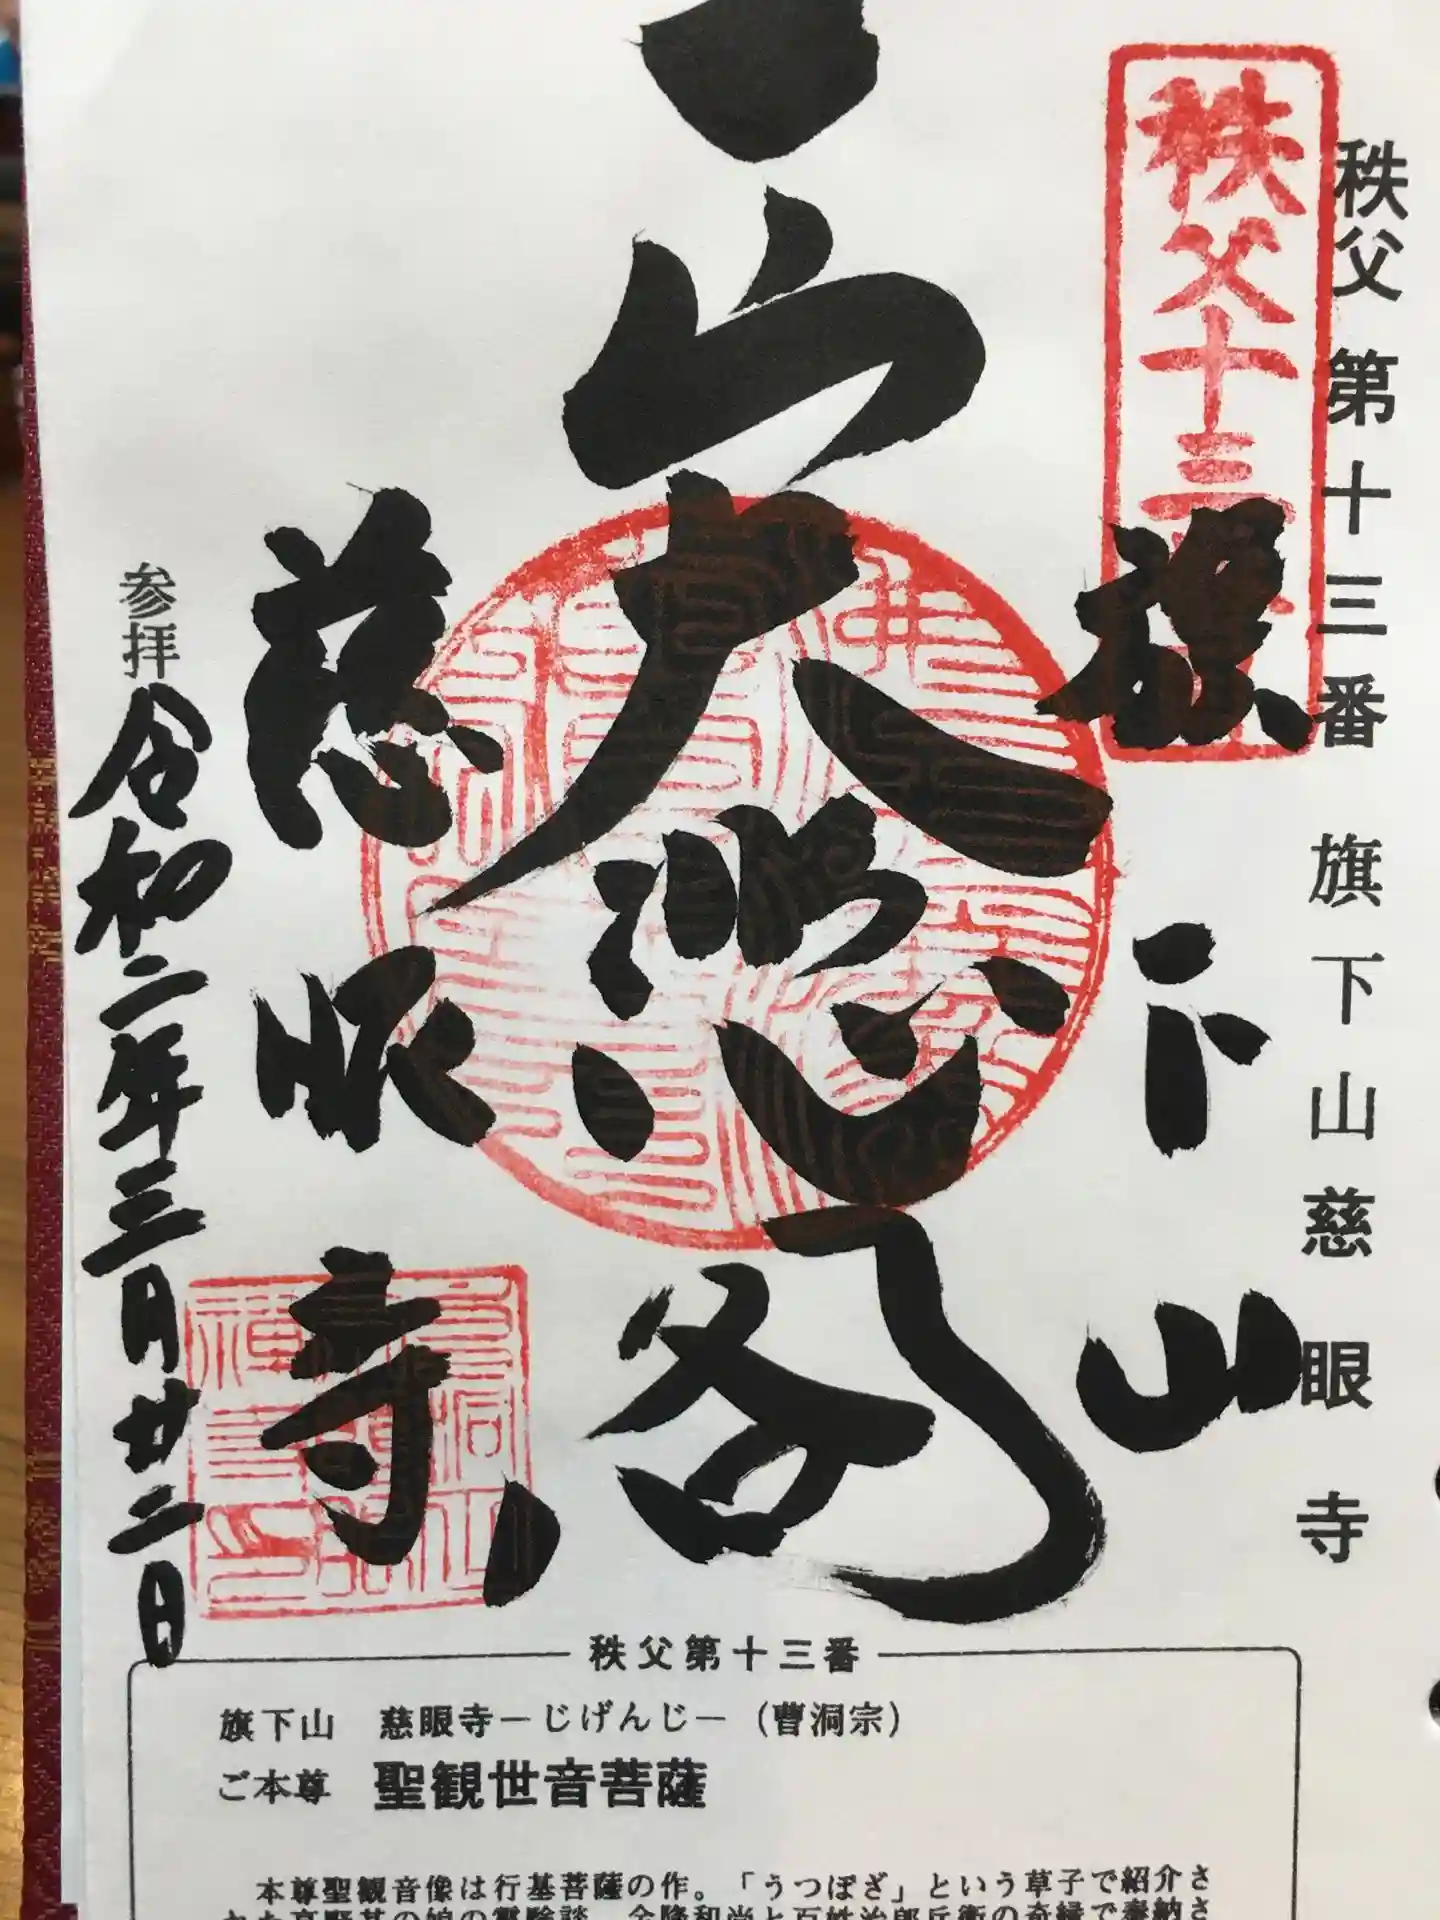 秩父第十三番 旗下山慈眼寺
秩父十三
旗下山
大悲閣
慈眼寺
参拝 令和二年三月廿二日
秩父第十三番
旗下山 慈眼寺－じげんじ－(曹洞宗)
ご本尊 聖観世音菩薩
本尊聖観音像は行基菩薩の作。「うつぼざ」という草子で紹介さ